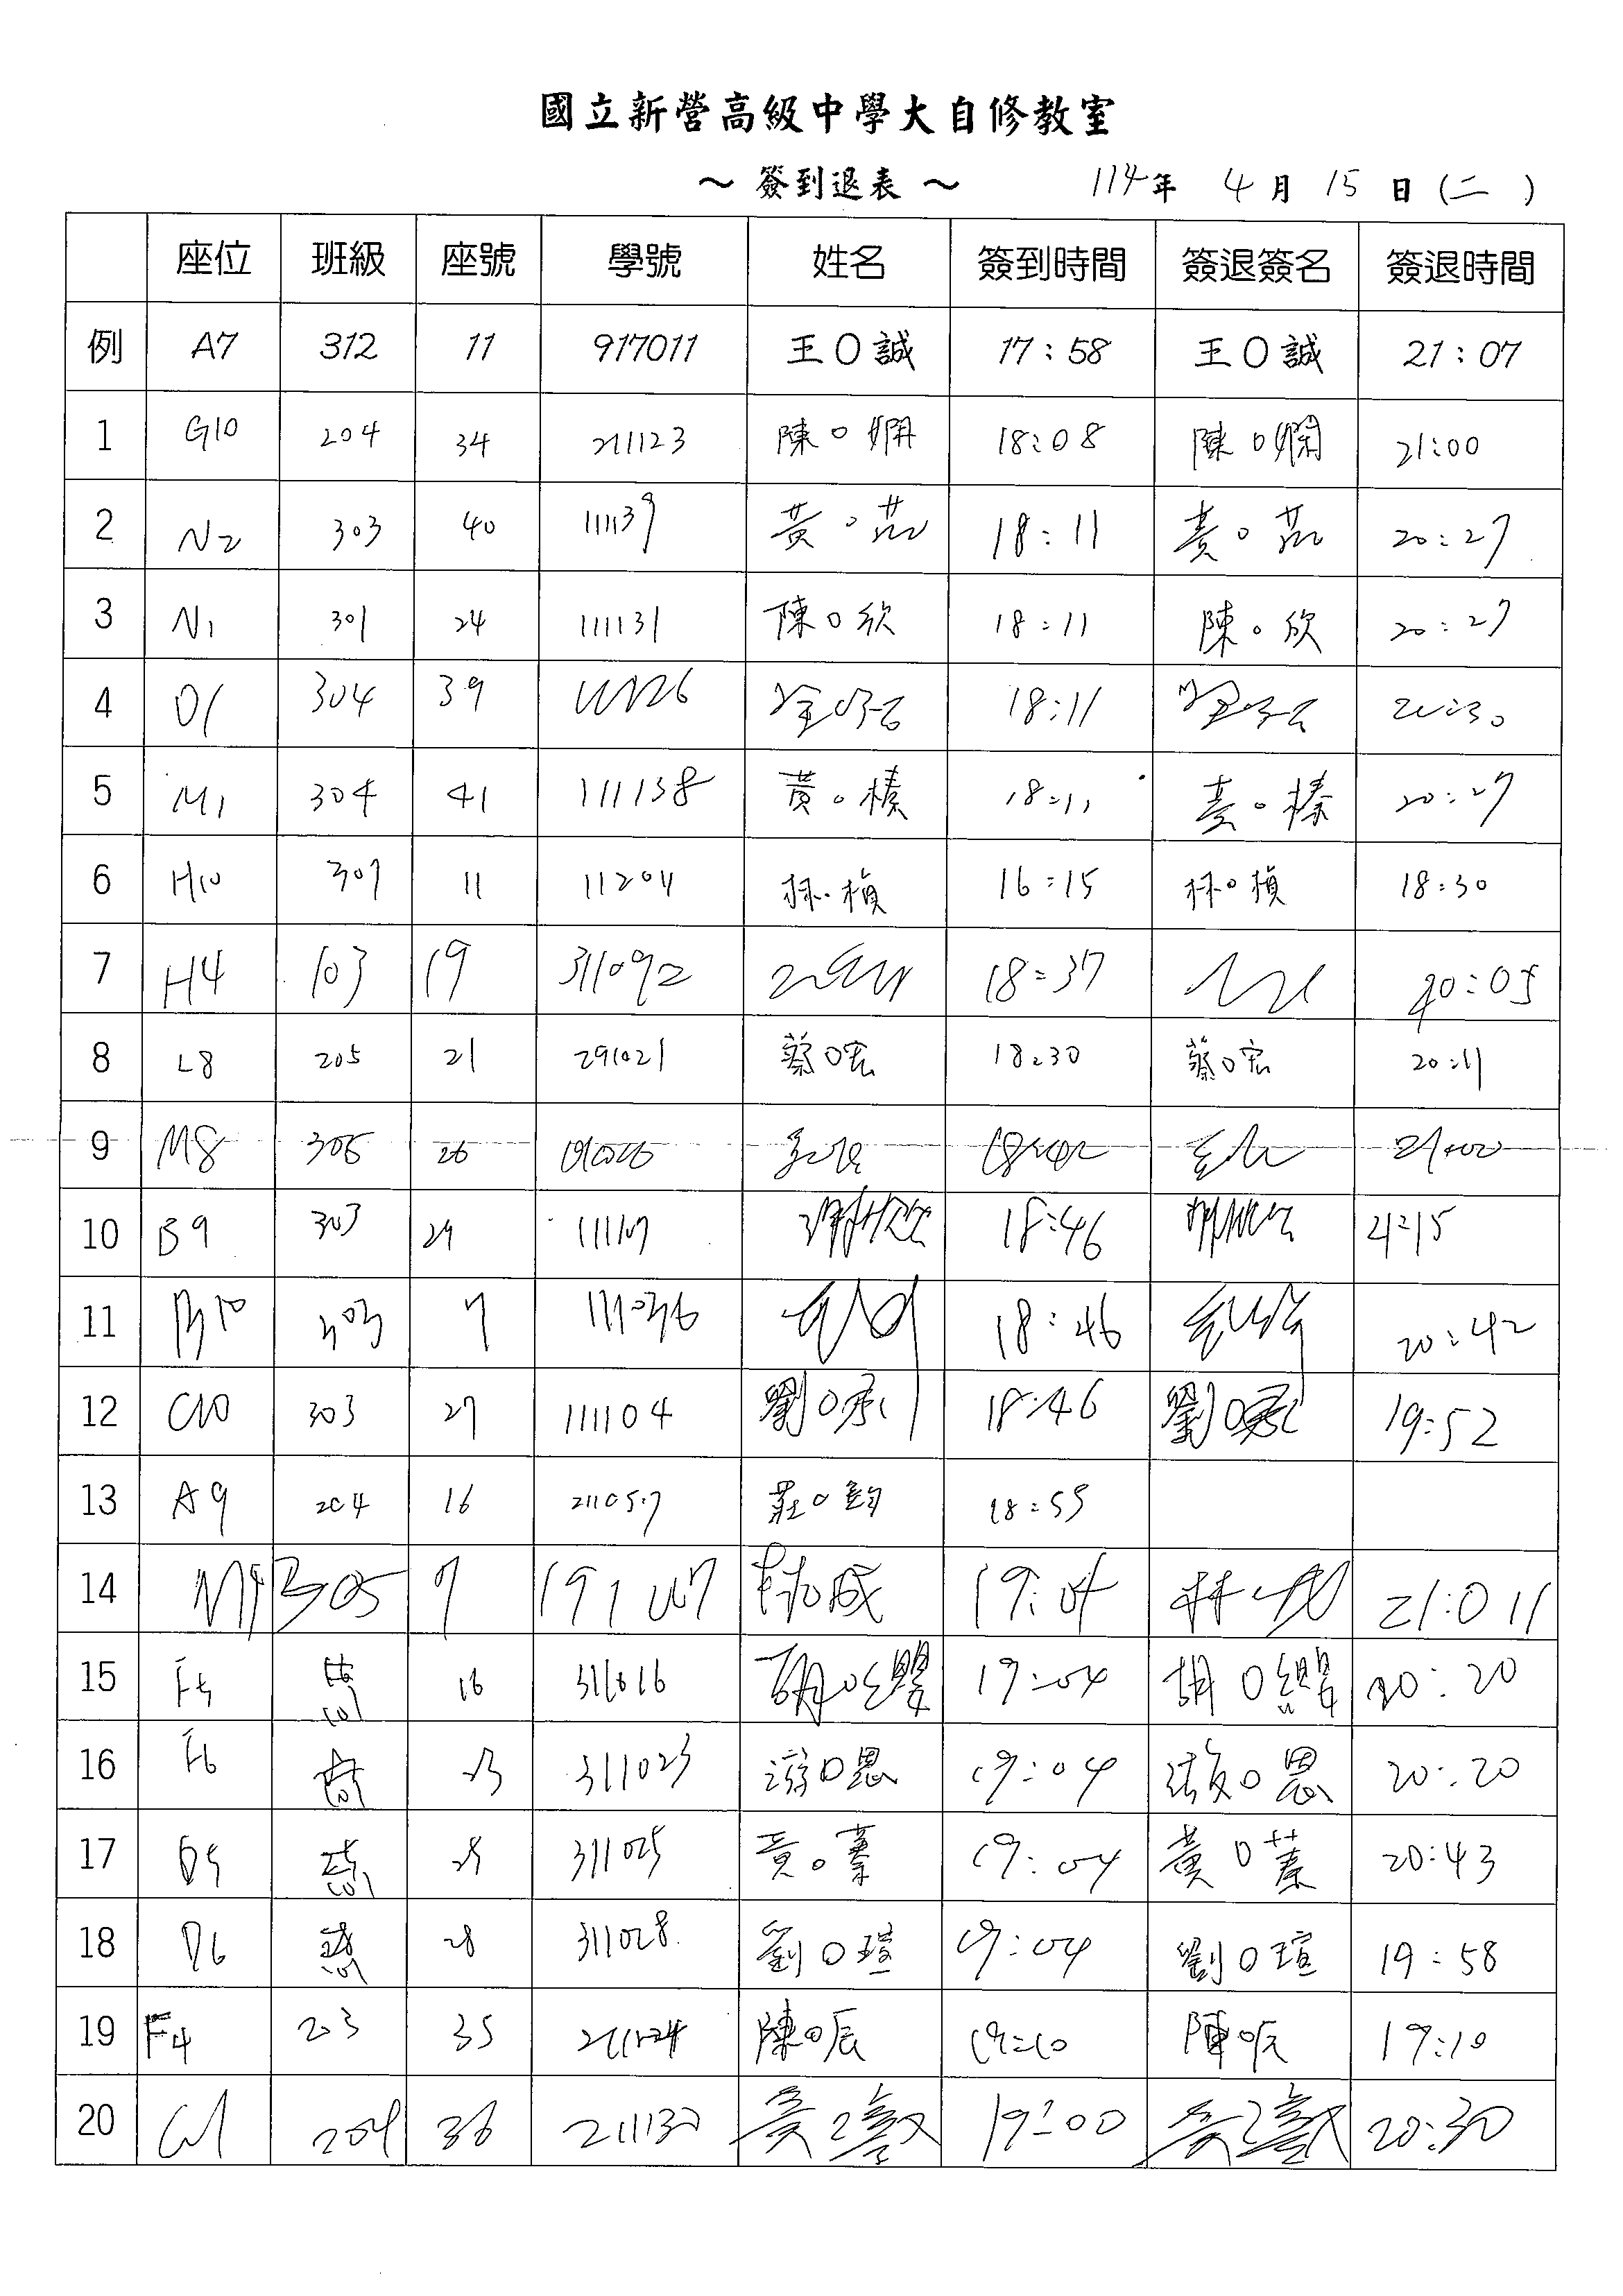 國立新營高級中學大自修教室
～ 簽到退表 ～ 114年 4月 15日(二)
座位 班級 座號 學號 姓名 簽到時間 簽退簽名 簽退時間
例 A7 312 11 917011 王〇誠 17:58 王〇誠 21:07
1 G10 204 34 211123 陳〇嫻 18:08 陳〇嫻 21:00
2 N2 303 40 111139 黃〇 18:11 黃〇 20:27
3 N1 301 24 111131 陳〇欣 18:11 陳〇欣 20:27
4 O1 304 39 111126 18:11
5 M1 304 41 111138 黃〇榛 18:11 黃〇榛 20:27
6 H10 307 11 11204 林〇楨 16:15 林〇楨 18:30
7 H4 103 19 311092 18:37 20:05
8 L8 205 21 291021 蔡〇宏 18:30 蔡〇宏 20:11
9 M8 306 26 21:00
10 B9 303 29 18:46 21:15
11 B10 303 7 111036 18:46 20:42
12 C10 303 27 111104 劉〇 18:46 劉〇 19:52
13 A9 204 16 211057 莊〇鈞 18:55
14 305 7 19:04
15 F5 16 311016 胡〇 19:04 胡〇 20:20
16 F6 23 311023 游〇恩 19:04 游〇恩 20:20
17 D5 25 311025 黃〇蓁 19:04 黃〇蓁 20:43
18 D6 28 311028 劉〇瑄 19:04 劉〇瑄 19:58
19 F4 203 35 陳〇辰 19:10 陳〇辰 19:10
20 204 36 211130 黃 19:00 黃 20:30